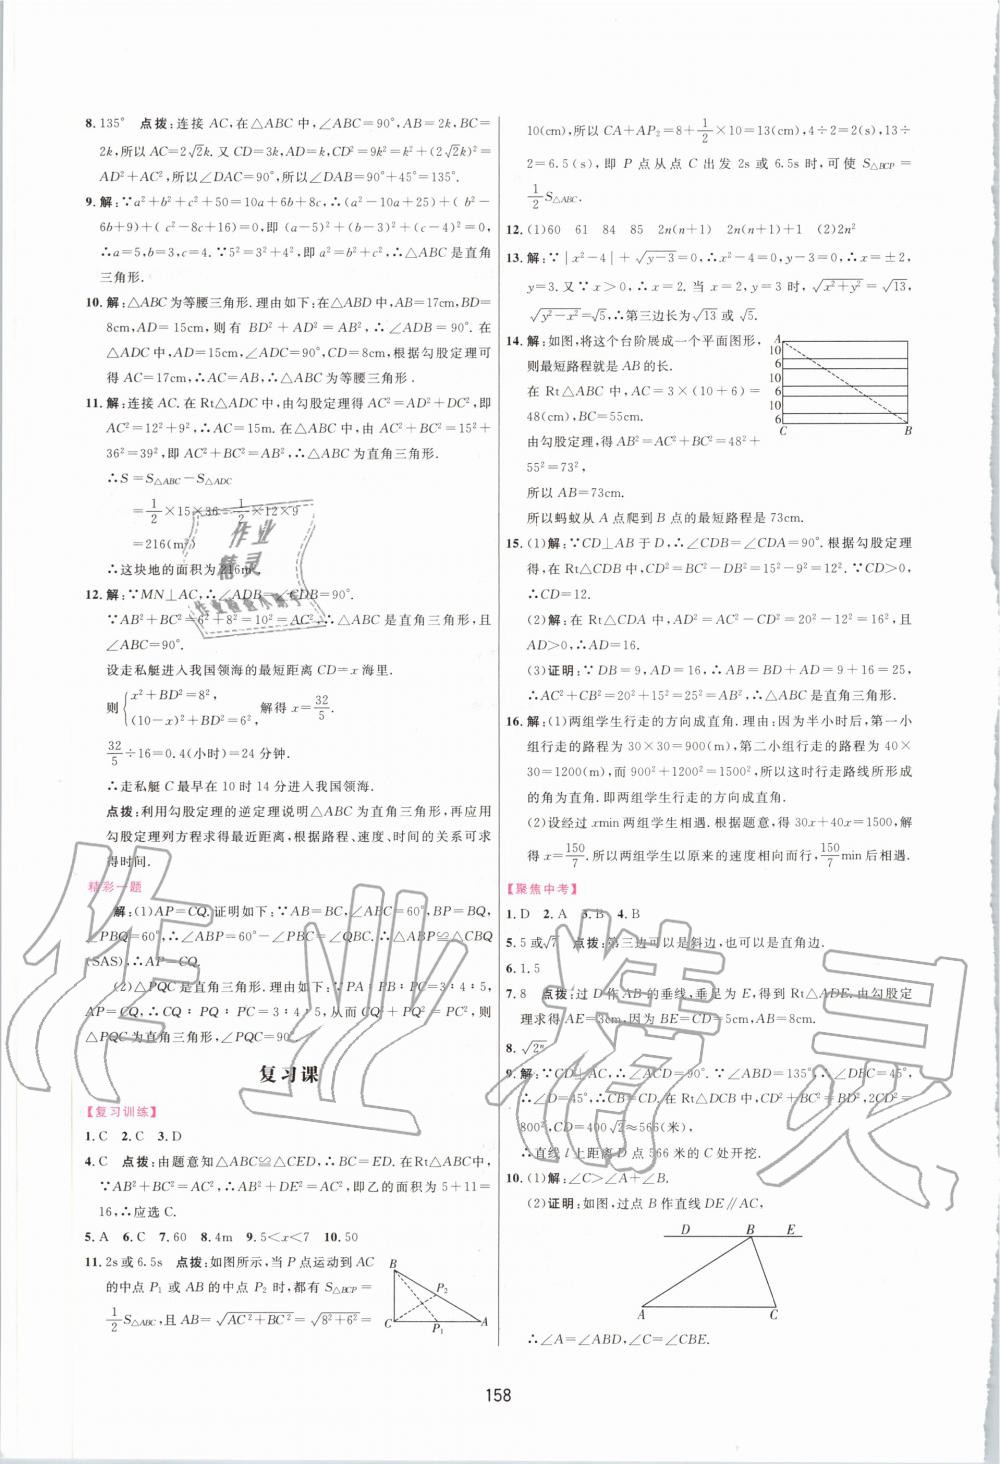 8. 135° 点拨:连接 AC,在△ABC 中,∠ABC=90°,AB=2k,BC=
2k,所以 AC=2√2k. 又 CD=3k,AD=k,CD²=9k²=k²+(2√2k)²=
AD²+AC²,所以∠DAC=90°,所以∠DAB=90°+45°=135°.
9. 解:∵a²+b²+c²+50=10a+6b+8c,∴(a²-10a+25)+(b²-
6b+9)+(c²-8c+16)=0,即(a-5)²+(b-3)²+(c-4)²=0,
∴a=5,b=3,c=4. ∵5²=3²+4²,即 a²=b²+c²,∴△ABC 是直角
三角形.
10. 解:△ABC 为等腰三角形. 理由如下:在△ABD 中,AB=17cm,BD=
8cm,AD=15cm,则有 BD²+AD²=AB²,∴∠ADB=90°. 在
△ADC 中,AD=15cm,∠ADC=90°,CD=8cm,根据勾股定理可
得 AC=17cm,∴AC=AB,∴△ABC 为等腰三角形.
11. 解:连接 AC. 在 Rt△ADC 中,由勾股定理得 AC²=AD²+DC²,即
AC²=12²+9²,∴AC=15m. 在△ABC 中,由 AC²+BC²=15²+
36²=39²,即 AC²+BC²=AB²,∴△ABC 为直角三角形.
∴S=S△ABC-S△ADC
=1/2×15×36-1/2×12×9
=216(m²)
∴这块地的面积为 216m².
12. 解:∵MN⊥AC,∴∠ADB=∠BDC=90°.
∵AB²+BC²=6²+8²=10²=AC²,∴△ABC 是直角三角形,且
∠ABC=90°.
设走私艇进入我国领海的最短距离 CD=x 海里.
则{x²+BD²=8², (10-x)²+BD²=6², 解得 x=32/5.
32/5÷16=0.4(小时)=24 分钟.
∴走私艇 C 最早在 10 时 14 分进入我国领海.
点拨:利用勾股定理的逆定理说明△ABC 为直角三角形,再应用
勾股定理列方程求得最近距离,根据路程、速度、时间的关系可求
得时间.
精彩一题
解:(1)AP=CQ. 证明如下:∵AB=BC,∠ABC=60°,BP=BQ,
∠PBQ=60°,∴∠ABP=60°-∠PBC=∠QBC. ∴△ABP≌△CBQ
(SAS),∴AP=CQ.
(2)△PQC 是直角三角形. 理由如下:∵PA∶PB∶PC=3∶4∶5,
AP=CQ,∴CQ∶PQ∶PC=3∶4∶5,从而 CQ²+PQ²=PC²,则
△PQC 为直角三角形,∠PQC=90°.
复习课
【复习训练】
1. C 2. C 3. D
4. C 点拨:由题意知△ABC≌△CED,∴BC=ED. 在Rt△ABC中,
∵AB²+BC²=AC²,∴AB²+DE²=AC²,即乙的面积为 5+11=
16,∴应选 C.
5. A 6. C 7. 60 8. 4m 9. 5<x<7 10. 50
11. 2s或6.5s 点拨:如图所示,当 P 点运动到 AC
的中点 P₁ 或 AB 的中点 P₂ 时,都有 S△BCP=
1/2S△ABC,且 AB=√(AC²+BC²)=√(8²+6²)=
B
P₂
C P₁ A
10(cm),所以 CA+AP₂=8+1/2×10=13(cm),4÷2=2(s),13÷
2=6.5(s),即 P 点从点 C 出发 2s 或 6.5s 时,可使 S△BCP=
1/2S△ABC.
12. (1)60 61 84 85 2n(n+1) 2n(n+1)+1 (2)2n²
13. 解:∵|x²-4|+√(y-3)=0,∴x²-4=0,y-3=0,∴x=±2,
y=3. 又∵x>0,∴x=2. 当 x=2,y=3 时,√(x²+y²)=√13,
√(y²-x²)=√5,∴第三边长为√13 或 √5.
14. 解:如图,将这个台阶展成一个平面图形,
则最短路程就是 AB 的长.
在 Rt△ABC 中,AC=3×(10+6)=
48(cm),BC=55cm.
由勾股定理,得 AB²=AC²+BC²=48²+
55²=73²,
所以 AB=73cm.
所以蚂蚁从 A 点爬到 B 点的最短路程是 73cm.
A
10
6
10
6
10
6
C B
15. (1)解:∵CD⊥AB 于 D,∴∠CDB=∠CDA=90°. 根据勾股定理
得,在 Rt△CDB 中,CD²=BC²-DB²=15²-9²=12². ∵CD>0,
∴CD=12.
(2)解:在 Rt△CDA 中,AD²=AC²-CD²=20²-12²=16²,且
AD>0,∴AD=16.
(3)证明:∵DB=9,AD=16,∴AB=BD+AD=9+16=25,
∴AC²+CB²=20²+15²=25²=AB²,∴△ABC 是直角三角形.
16. 解:(1)两组学生行走的方向成直角. 理由:因为半小时后,第一小
组行走的路程为 30×30=900(m),第二小组行走的路程为 40×
30=1200(m),而 900²+1200²=1500²,所以这时行走路线所形成
的角为直角. 即两组学生行走的方向成直角.
(2)设经过 xmin 两组学生相遇. 根据题意,得 30x+40x=1500,解
得 x=150/7. 所以两组学生以原来的速度相向而行,150/7min后相遇.
【聚焦中考】
1. D 2. A 3. B 4. B
5. 5 或√7 点拨:第三边可以是斜边,也可以是直角边.
6. 1.5
7. 8 点拨:过 D 作 AB 的垂线,垂足为 E,得到 Rt△ADE. 由勾股定
理求得 AE=3cm,因为 BE=CD=5cm,AB=8cm.
8. √2ⁿ
9. 解:∵CD⊥AC,∴∠ACD=90°. ∵∠ABD=135°,∴∠DBC=45°,
∴∠D=45°,∴CB=CD. 在 Rt△DCB 中,CD²+BC²=BD²,2CD²=
800²,CD=400√2≈566(米),
∴直线 l 上距离 D 点 566 米的 C 处开挖.
10. (1)解:∠C>∠A+∠B.
(2)证明:如图,过点 B 作直线 DE∥AC,
D B E
A C
∴∠A=∠ABD,∠C=∠CBE.
158
作业精灵
作业
精灵